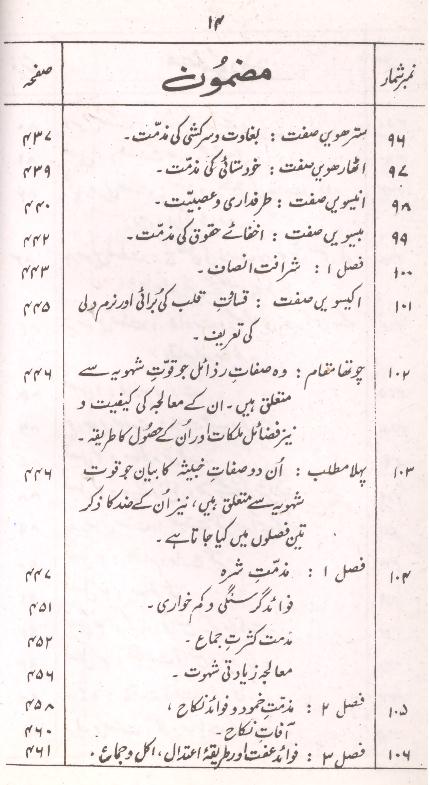 ۱۴
نمبر شمار مضمُون صفحہ
۹۶ سترھویں صفت : بغاوت و سرکشی کی مذمّت۔ ۴۳۷
۹۷ اٹھارھویں صفت : خودستائی کی مذمّت۔ ۴۳۹
۹۸ انیسویں صفت : طرفداری و عصبیّت۔ ۴۴۰
۹۹ بیسویں صفت : اخفائے حقوق کی مذمّت۔ ۴۴۲
۱۰۰ فصل ۱ : شرافت انصاف۔ ۴۴۳
۱۰۱ اکیسویں صفت : قساتِ قلب کی بُرائی اور نرم دلی ۴۴۵
کی تعریف۔
۱۰۲ چوتھا مقام : وہ صفات رذائل جو قوّتِ شہویہ سے ۴۴۶
متعلق ہیں۔ ان کے معالجہ کی کیفیت و
نیز فضائل ملکات اور اُن کے حصُول کا طریقہ۔
۱۰۳ پہلا مطلب : اُن دو صفات خبیثہ کا بیان جو قوتِ ۴۴۶
شہویہ سے متعلق ہیں، نیز اُن کے ضد کا ذکر
تین فصلوں میں کیا جاتا ہے۔
۱۰۴ فصل ۱ : مذمّتِ شرہ ۴۴۷
فوائد گرسنگی و کم خواری۔ ۴۵۱
مذمت کثرتِ جماع۔ ۴۵۲
معالجہ زیادتی شہوت۔ ۴۵۶
۱۰۵ فصل ۲ : مذمّتِ خمود و فوائد نکاح، ۴۵۸
آفاتِ نکاح۔ ۴۶۰
۱۰۶ فصل ۳ : فوائد عفت اور طریقۂ اعتدال، اکل و جماع۔ ۴۶۱